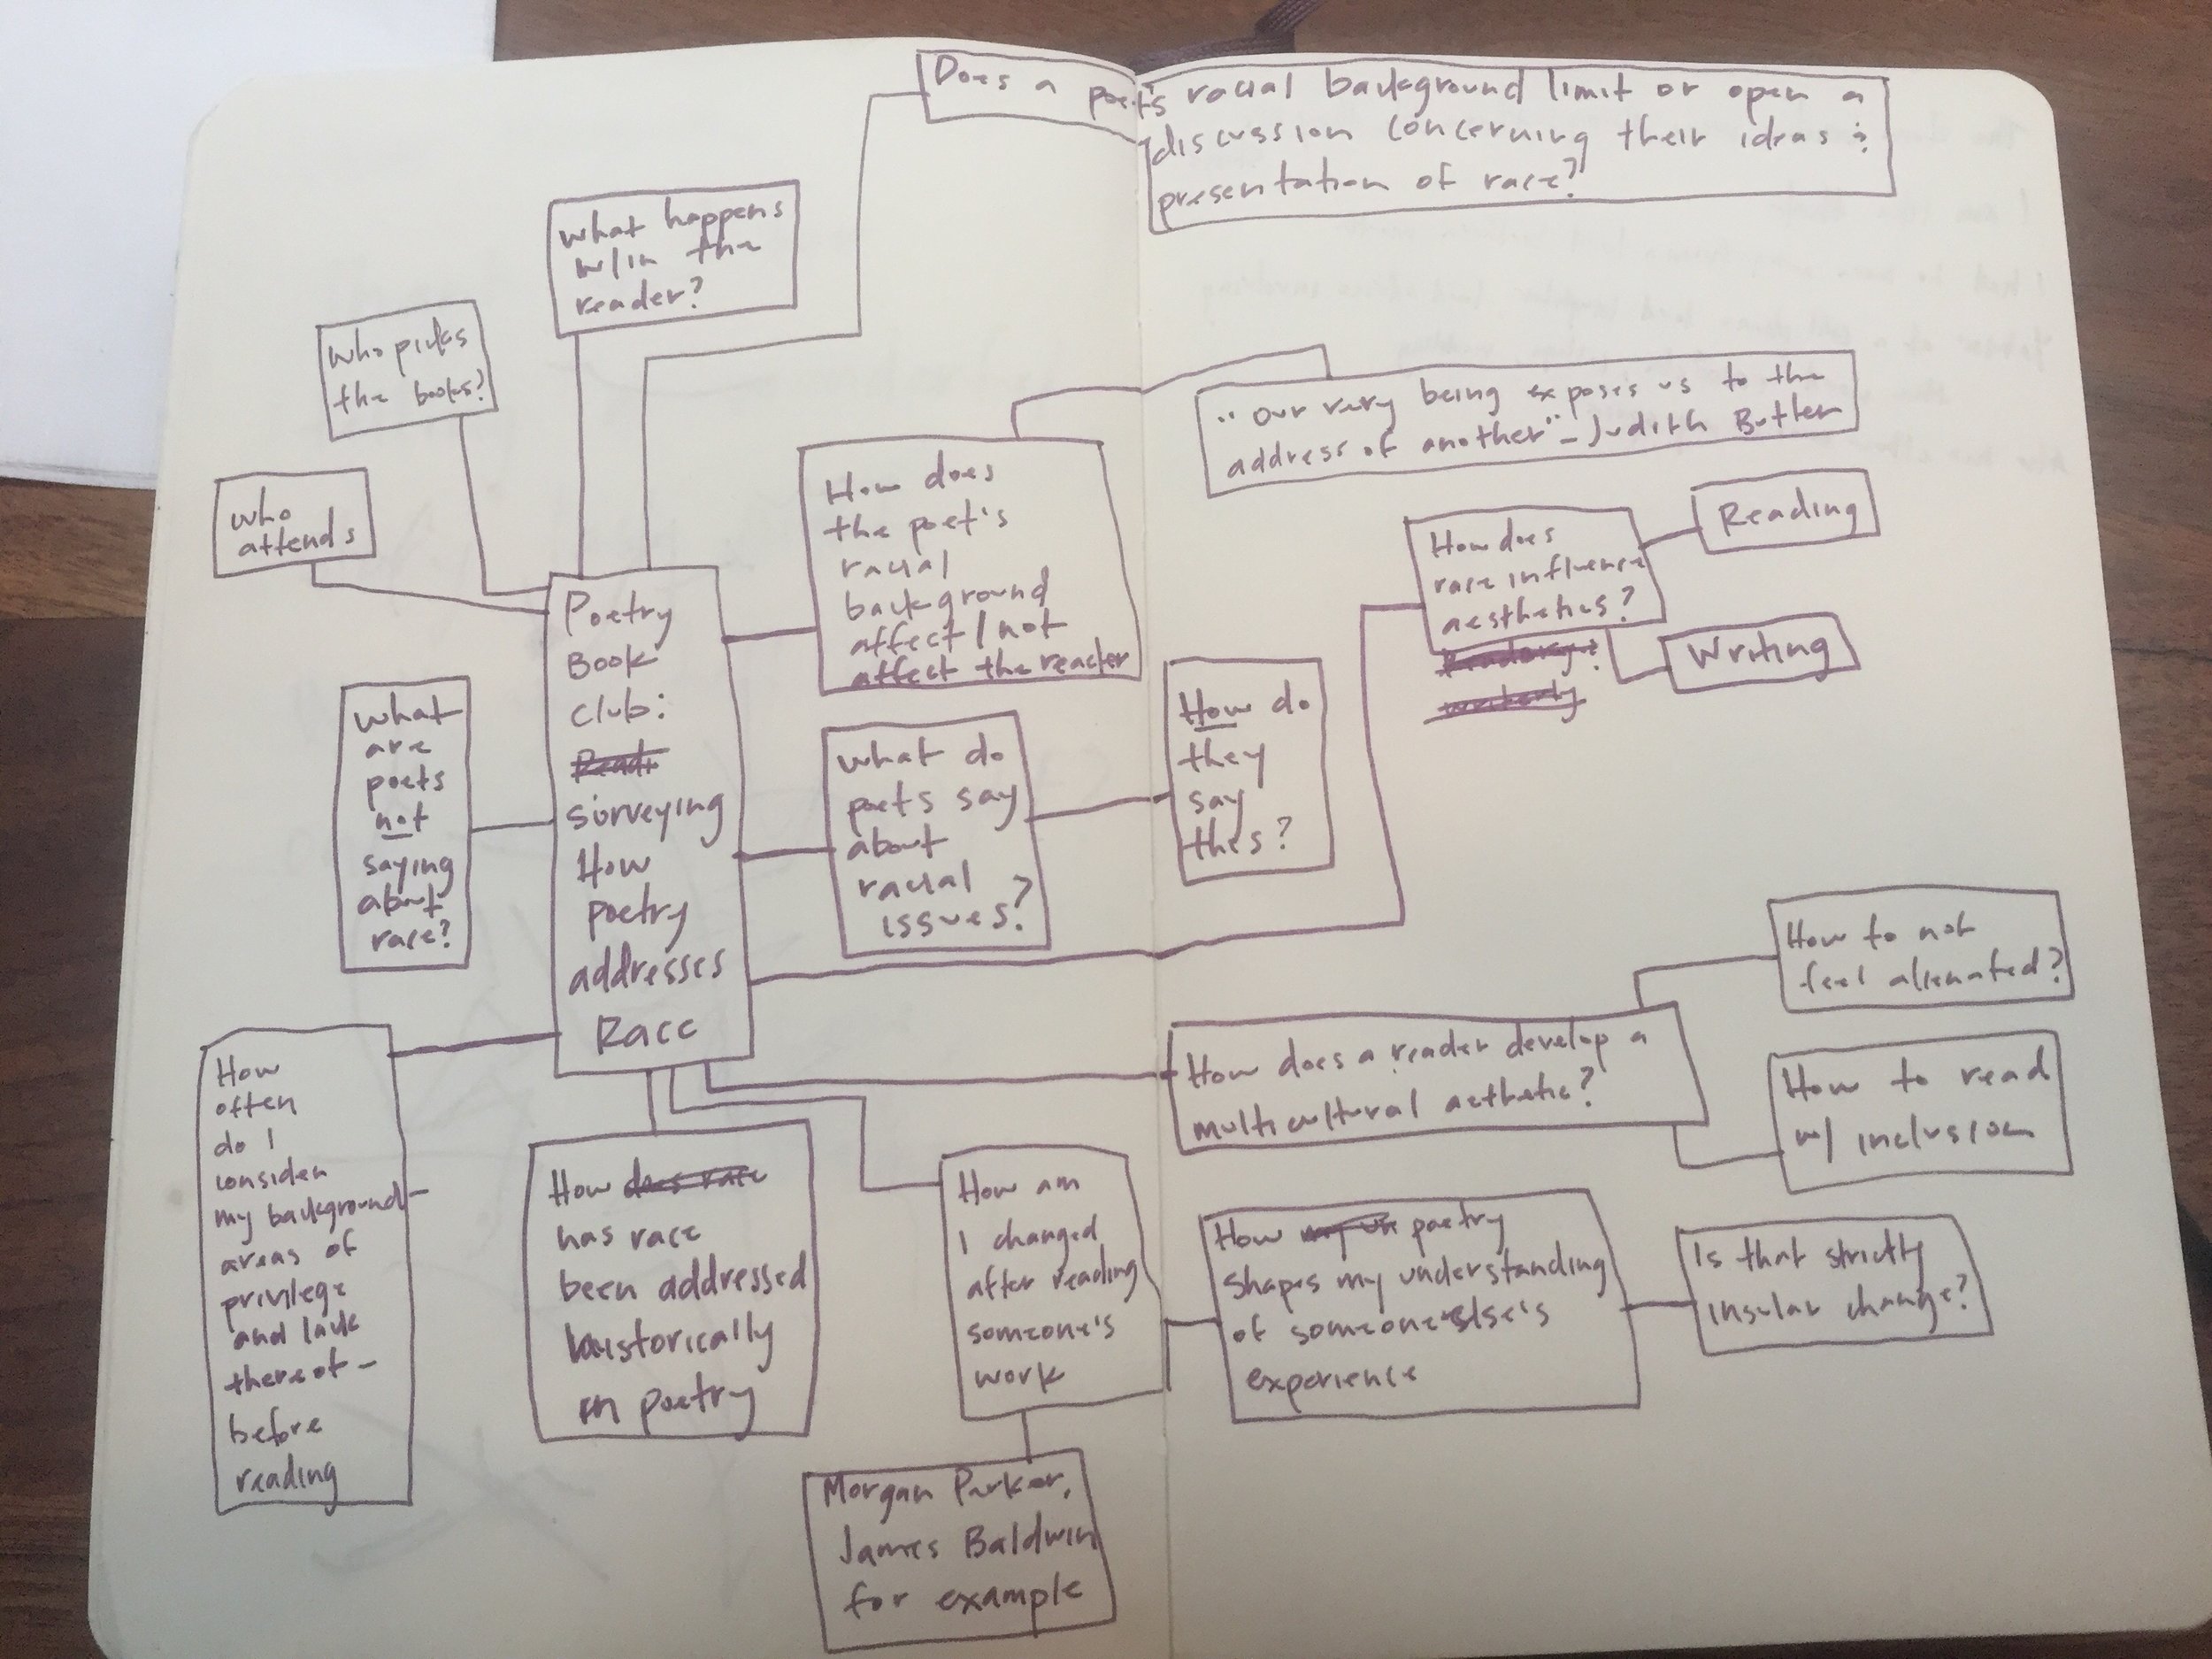 Does a poet's racial background limit or open a
discussion concerning their ideas &
presentation of race?
what happens
w/in the
reader?
who picks
the books?
who
attends
"our very being exposes us to the
address of another" - Judith Butler
How does
the poet's
racial
background
affect / not
affect the reader
How does
race influence
aesthetics?
Reading
Writing
Poetry
Book
Club:
surveying
How
poetry
addresses
Race
what
are
poets
not
saying
about
race?
what do
poets say
about
racial
issues?
How do
they
say
thes?
How to not
feel alienated?
How does a reader develop a
multicultural aesthetic?
How to read
w/ inclusion
How
often
do I
consider
my background –
areas of
privilege
and lack
thereof –
before
reading
How does race
has race
been addressed
historically
in poetry
How am
I changed
after reading
someone's
work
How poetry
shapes my understanding
of someone else's
experience
Is that strictly
insular change?
Morgan Parker,
James Baldwin
for example